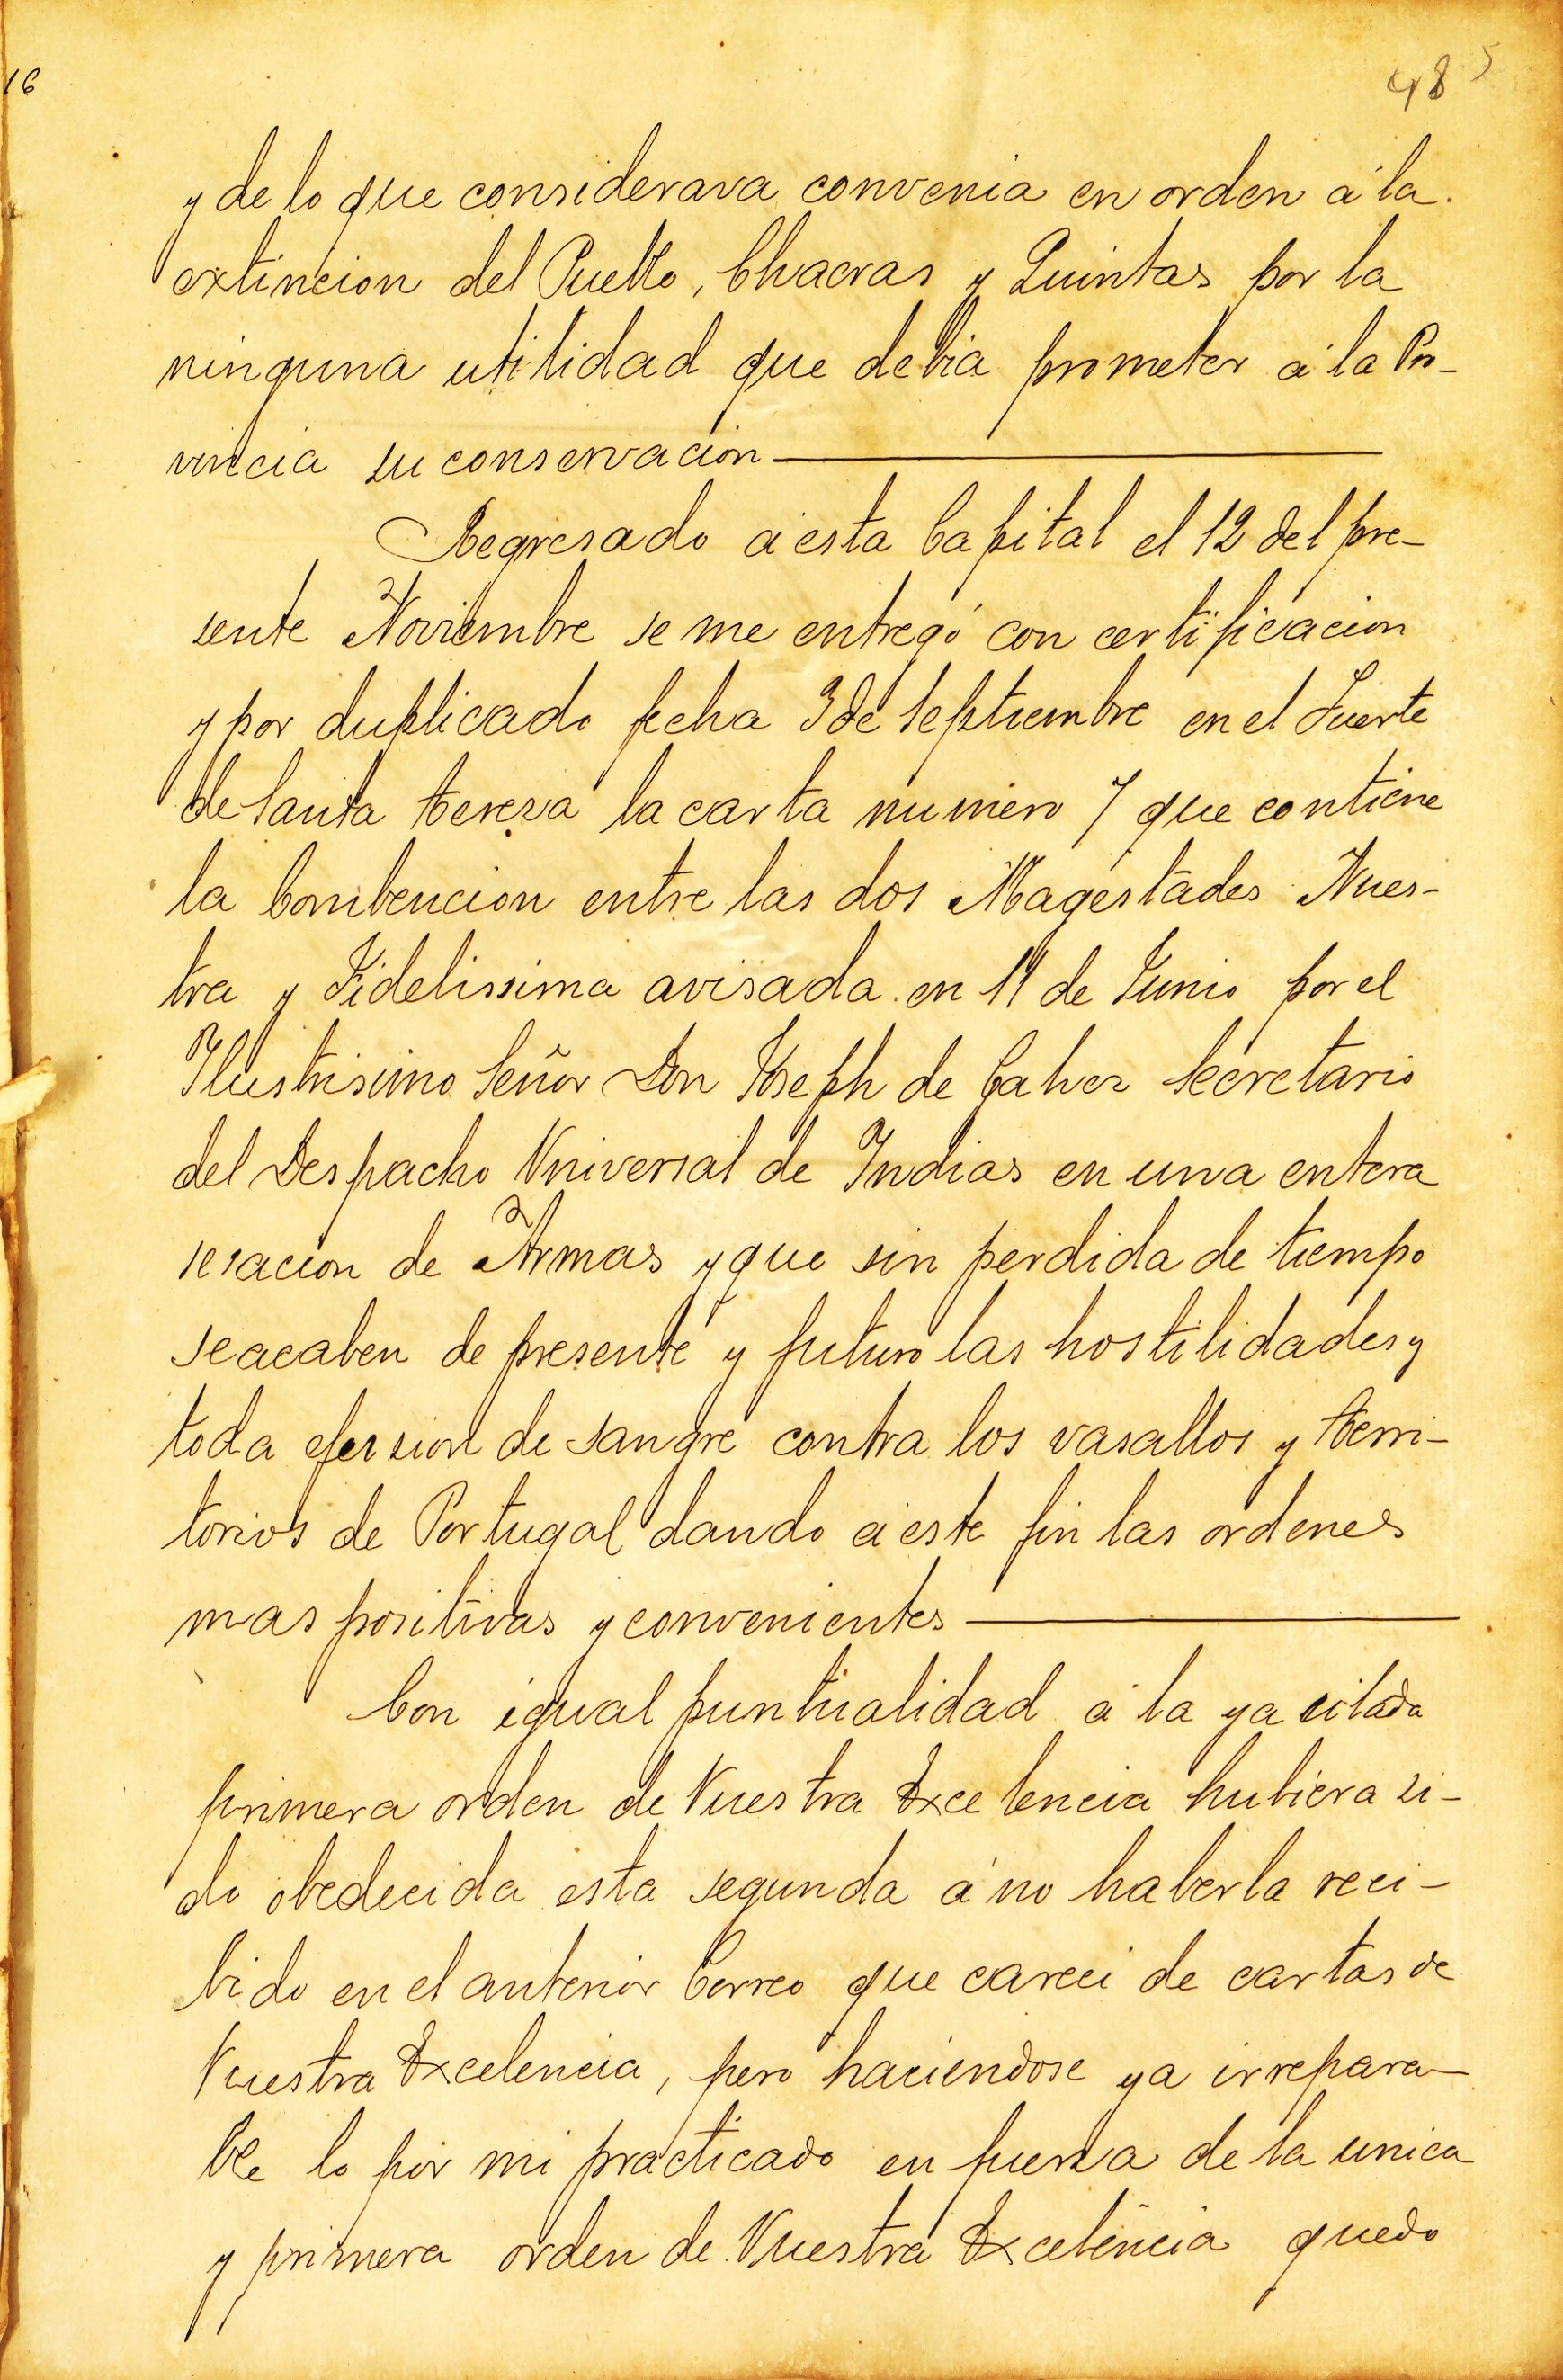 16
485
y de lo que considerava convenia en orden á la
extincion del Pueblo, Chacras y Quintas por la
ninguna utilidad que debia prometer á la Pro-
vincia su conservacion
Regresado á esta Capital el 12 del pre-
sente Noviembre se me entregó con certificacion
y por duplicado fecha 3 de Septiembre en el Fuerte
de Santa Teresa la carta numero 7 que contiene
la Combencion entre las dos Magestades Nues-
tra y Fidelissima avisada en 11 de Junio por el
Ilustrisimo Señor Don Joseph de Galvez Secretario
del Despacho Vniversal de Indias en una entera
sesacion de Armas y que sin perdida de tiempo
se acaben de presente y futuro las hostilidades y
toda efersion de sangre contra los vasallos y terri-
torios de Portugal dando á este fin las ordenes
mas positivas y convenientes
Con igual puntualidad á la ya citada
primera orden de Vuestra Excelencia hubiera si-
do obedecida esta segunda á no haberla reci-
bido en el anterior Correo que careci de cartas de
Vuestra Excelencia, pero haciendose ya irrepara-
ble lo por mi practicado en fuerza de la unica
y primera orden de Vuestra Excelencia quedo